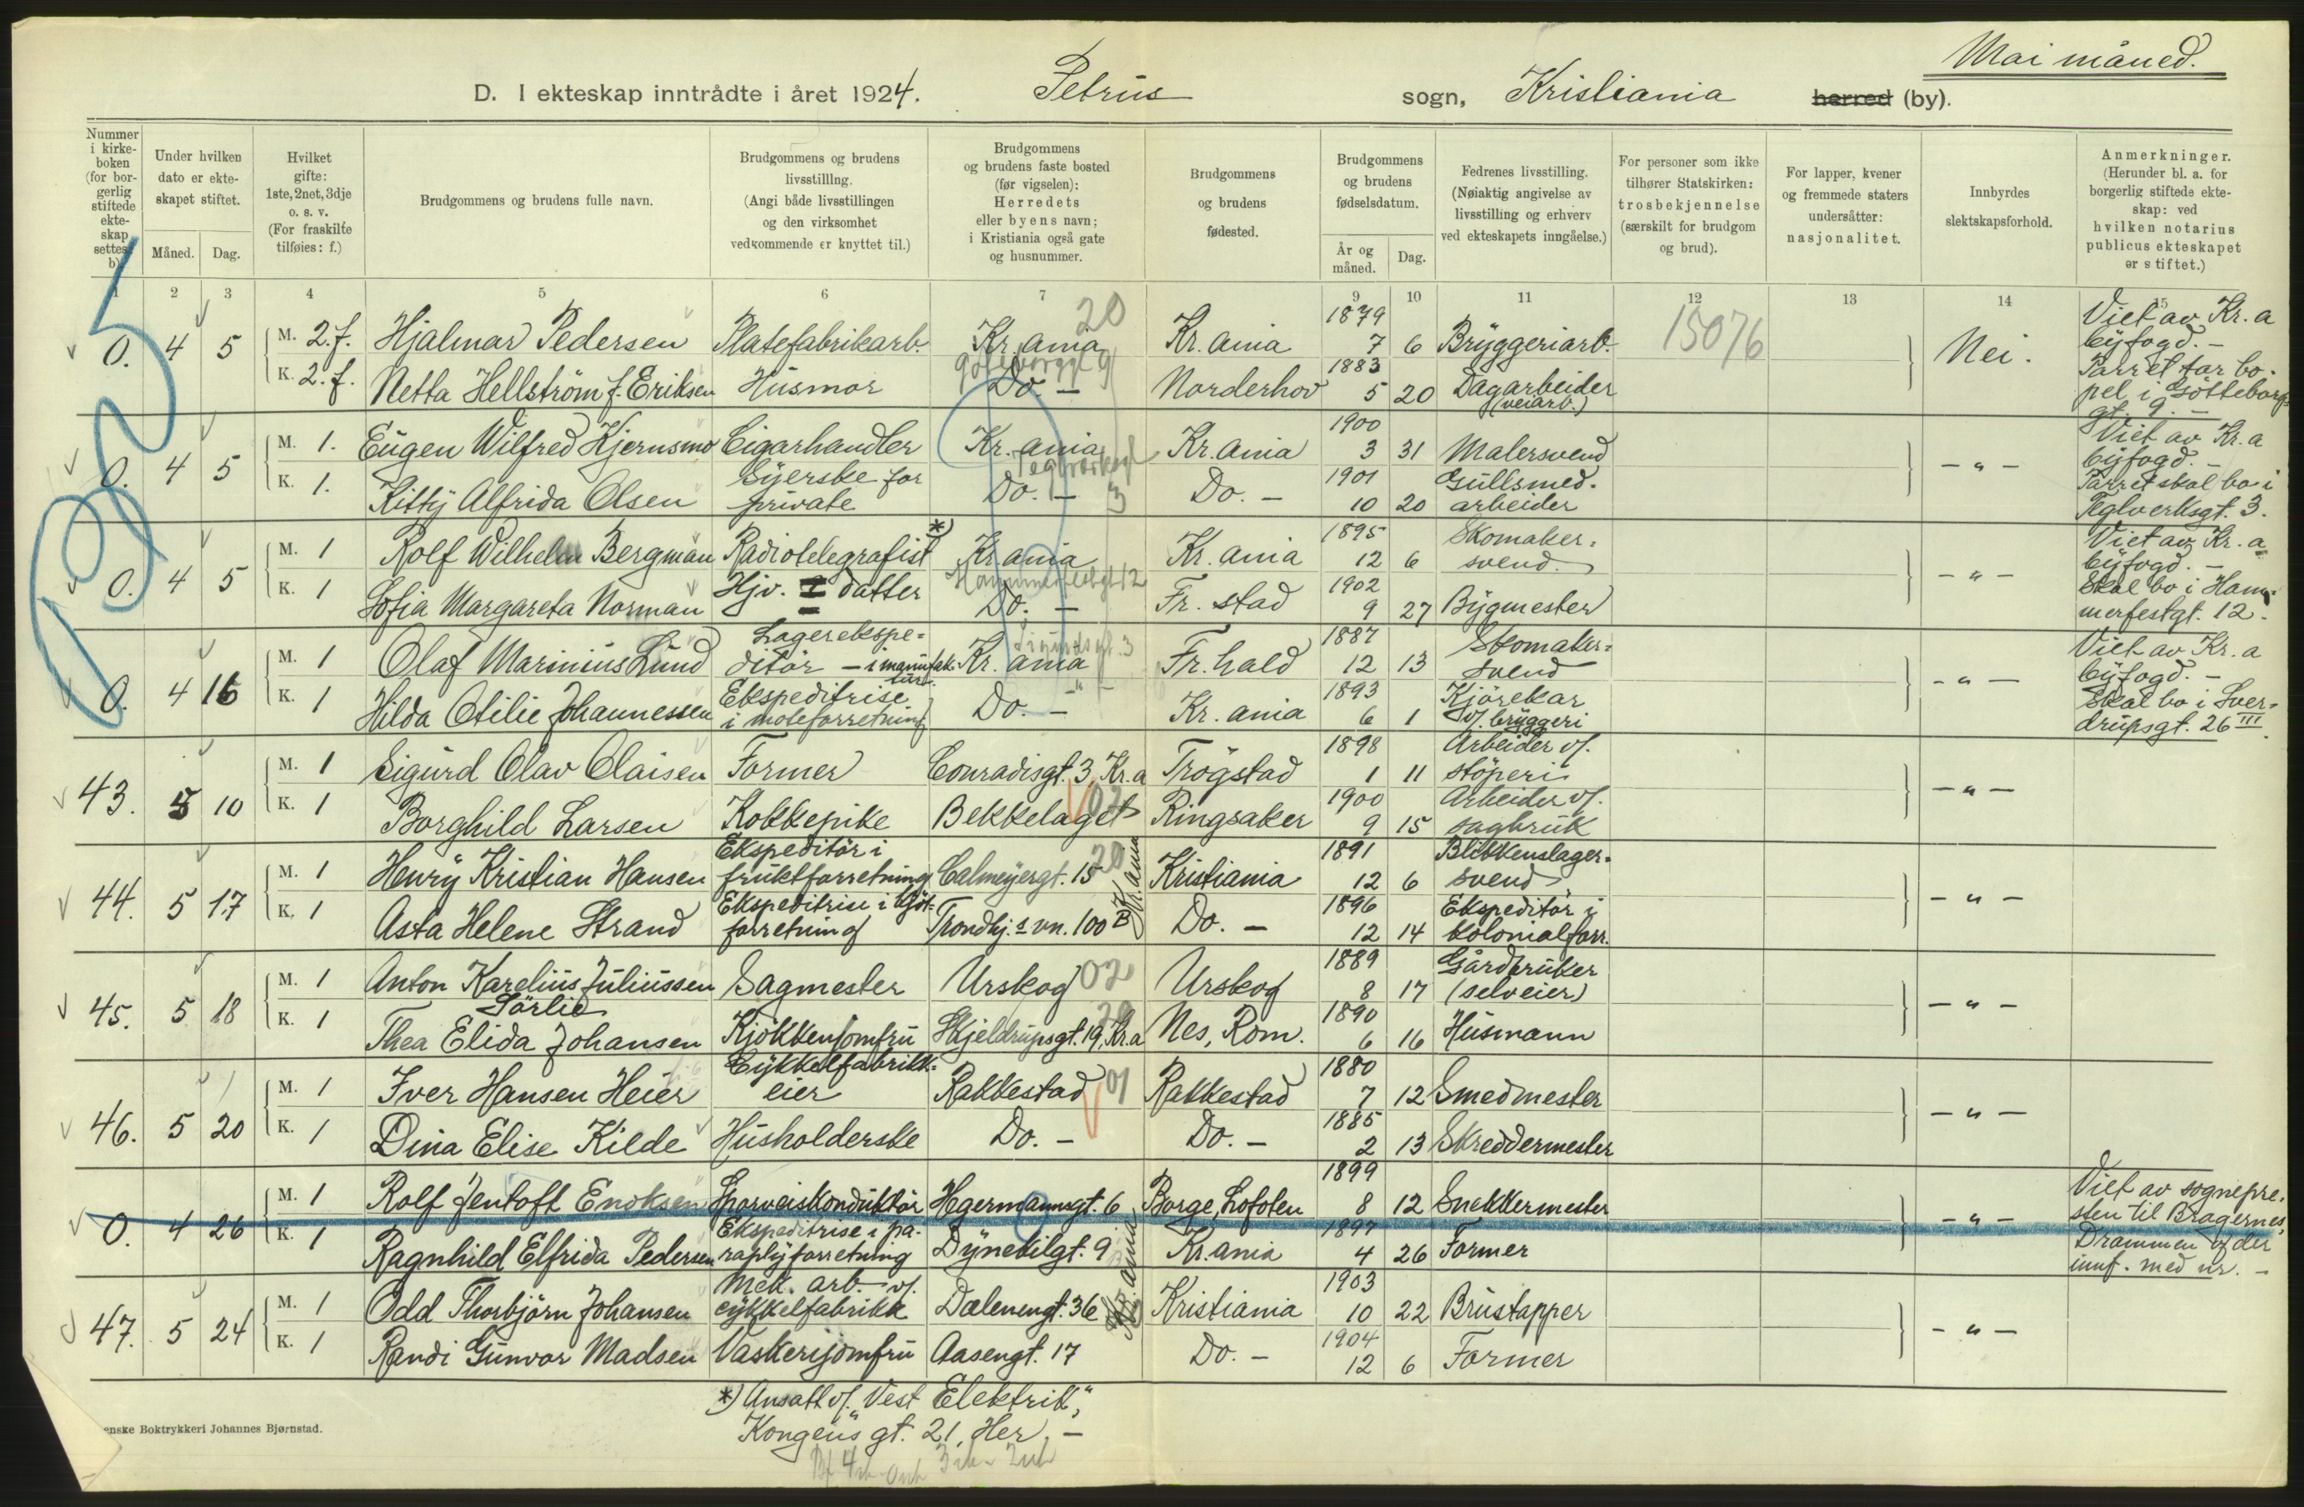 Mai måned.
D. I ekteskap inntrådte i året 1924. Petrus sogn, Kristiania herred (by).
Nummer i kirke-boken (for bor-gerlig stiftede ekte-skap settes: b)
Under hvilken dato er ekte-skapet stiftet.
Måned. Dag.
Hvilket gifte: 1ste, 2net, 3dje o. s. v. (For fraskilte tilføies: f.)
Brudgommens og brudens fulle navn.
Brudgommens og brudens livsstilllng. (Angi både livsstillingen og den virksomhet vedkommende er knyttet til.)
Brudgommens og brudens faste bosted (før vigselen): Herredets eller byens navn; i Kristiania også gate og husnummer.
Brudgommens og brudens fødested.
Brudgommens og brudens fødselsdatum.
År og måned. Dag.
Fedrenes livsstilling. (Nøiaktig angivelse av livsstilling og erhverv ved ekteskapets inngåelse.)
For personer som ikke tilhører Statskirken: trosbekjennelse (særskilt for brudgom og brud).
For lapper, kvener og fremmede staters undersåtter: nasjonalitet.
Innbyrdes slektskapsforhold.
Anmerkninger. (Herunder bl. a. for borgerlig stiftede ekte-skap: ved hvilken notarius publicus ekteskapet er stiftet.)
1 2 3 4 5 6 7 9 10 11 12 13 14 15
0. 4 5 M. 2. f. Hjalmar Pedersen Platefabrikarb. Kr.ania 20 Kr.ania 1879 7 6 Bryggeriarb. 15076 Nei.
K. 2. f. Netta Hellström f. Eriksen Husmor Do. — Norderhov 1883 5 20 Dagarbeider (veiarb.)
Viet av Kr.a
byfogd. —
Parret tar bo-
pel i Götteborg-
gt. 9. —
0. 4 5 M. 1. Eugen Wilfred Kjernsmo Cigarhandler Kr.ania Kr.ania 1900 3 31 Malersvend — „ —
K. 1. Kitty Alfrida Olsen Syerske for private Do. — 3 Do. — 1901 10 20 Gullsmed-arbeider
Viet av Kr.a
byfogd. —
Parret skal bo i
Teglverksgt. 3.
0. 4 5 M. 1 Rolf Wilhelm Bergman Radiotelegrafist *) Kr.ania Kr.ania 1895 12 6 Skomaker-svend. — „ —
K. 1 Sofia Margareta Norman Hjv. datter Hammerfestgt 12 Do. — Fr.stad 1902 9 27 Bygmester
Viet av Kr.a
byfogd. —
Skal bo i Ham-
merfestgt. 12.
0. 4 16 M. 1 Olaf Marinius Lund Lagerekspe-ditör — i manufak-tur Kr.ania Fr.hald 1887 12 13 Skomaker-svend — „ —
K. 1 Hilda Otilie Johannessen Ekspeditrise i moteforretning Do. — Kr.ania 1893 6 1 Kjörekar v/. bryggeri
Viet av Kr.a
byfogd. —
Skal bo i Sver-
drupsgt. 26 III.
43. 5 10 M. 1 Sigurd Olav Olaisen Former Conradisgt. 3, Kr.a Trögstad 1898 1 11 Arbeider v/. stöperi — „ —
K. 1 Borghild Larsen Kokkepike Bekkelaget 02 Ringsaker 1900 9 15 Arbeider v/. sagbruk
44. 5 17 M. 1 Henry Kristian Hansen Ekspeditör i fruktforretning Calmeyergt. 15 20 Kr.ania Kristiania 1891 12 6 Blikkenslager-svend — „ —
K. 1 Asta Helene Strand Ekspeditrise i forretning Trondhj.s vn. 100 B Do. — 1896 12 14 Ekspeditör i kolonialforr.
45. 5 18 M. 1 Anton Karelius Juliussen Sörlie Sagmester Urskog 02 Urskog 1889 8 17 Gårdbruker (selveier) — „ —
K. 1 Thea Elida Johansen Kjökkenjomfru Skjeldrupsgt. 19, Kr.a 20 Nes, Rom. 1890 6 16 Husmann
46. 5 20 M. 1 Iver Hansen Heier Cykkelfabrikk-eier Rakkestad 01 Rakkestad 1880 7 12 Smedmester — „ —
K. 1 Dina Elise Kilde Husholderske Do. — Do. — 1885 2 13 Skreddermester
0. 4 26 M. 1 Rolf Jentoft Enoksen Sporveiskonduktör Hegermannsgt. 6 Borge, Lofoten 1899 8 12 Snekkermester — „ —
K. 1 Ragnhild Elfrida Pedersen Ekspeditrise i pa-raplyforretning Dynekilgt. 9 Kr.ania Kr.ania 1897 4 26 Former
Viet av sognepre-
sten til Bragernes,
Drammen og der
innf. med nr. —
47. 5 24 M. 1 Odd Thorbjörn Johansen Mek. arb. v/. cykkelfabrikk Dælenengt. 36 Kristiania 1903 10 22 Brustapper — „ —
K. 1 Randi Gunvor Madsen Vaskerijomfru Aasengt. 17 Do. — 1904 12 6 Former
*) Ansatt v/. „Vest Elektrik",
Kongens gt. 21, Her. —
enske Boktrykkeri Johannes Bjørnstad.